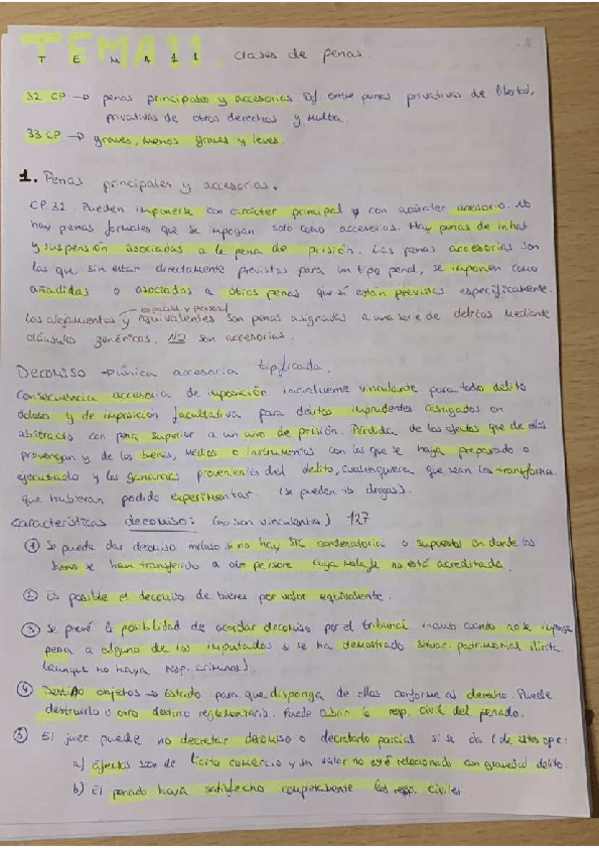 TEMA 11. clases de penas.
32 CP → penas principales y accesorias Dif. entre penas privativas de libertad,
privativas de otros derechos y multa.
33 CP → graves, menos graves y leves.
1. Penas principales y accesorias.
CP 32. Pueden imponerse con carácter principal y con carácter accesorio. No
hay penas formales que se impongan solo como accesorias. Hay penas de inhab
y suspensión asociadas a la pena de prisión. Las penas accesorias son
las que, sin estar directamente previstas para un tipo penal, se imponen como
añadidas o asociadas a otras penas que sí están previstas específicamente.
especial y personal
Los alejamientos y equivalentes son penas asignadas a una serie de delitos mediante
cláusula genéricas. NO son accesorias.
Decomiso → única accesoria tipificada.
Consecuencia accesoria de imposición inicialmente vinculante para todo delito
doloso y de imposición facultativa para delitos imprudentes castigados en
abstracto con pena superior a un año de prisión. Pérdida de los efectos que de ellos
provengan y de los bienes, medios o instrumentos con los que se haya preparado o
ejecutado y las ganancias provenientes del delito, cualesquiera que sean las transforma.
que hubieran podido experimentar. (se pueden drogas).
Características decomiso: (no son vinculantes) 127
① Se puede dar decomiso incluso si no hay Stc condenatoria o supuestos en donde los
bienes se han transferido a otra persona cuya no está acreditada.
② Es posible el decomiso de bienes por valor equivalente.
③ Se prevé la posibilidad de acordar decomiso por el tribunal incluso cuando no se imponga
pena a alguno de los imputados si se ha demostrado situac. patrimonial ilícita.
(aunque no haya resp. criminal).
④ Destino objetos → Estado para que disponga de ellos conforme al derecho. Puede
destruirlo u otro destino reglamentario. Puede cubrir la resp. civil del penado.
⑤ El juez puede no decretar decomiso o decretarlo parcial si se da 1 de estas opc:
a) Efectos son de lícito comercio y su valor no esté relacionado con gravedad delito.
b) El penado haya satisfecho completamente las resp. civiles